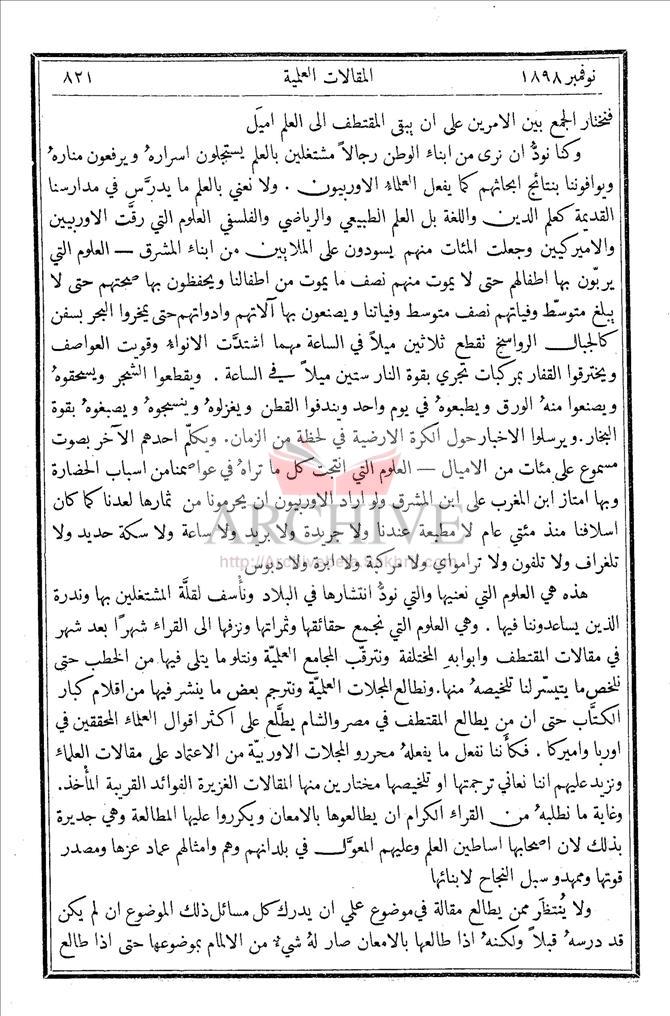 نوفمبر ١٨٩٨ المقالات العلمية ٨٢١
فنختار الجمع بين الامرين على ان يبقى المقتطف الى العلم اميَل
وكنا نودُّ ان نرى من ابناء الوطن رجالاً مشتغلين بالعلم يستجلون اسرارهُ ويرفعون منارهُ
ويوافوننا بنتائج ابحاثهم كما يفعل العلماء الاوربيون . ولا نعني بالعلم ما يدرَّس في مدارسنا
القديمة كعلم الدين واللغة بل العلم الطبيعي والرياضي والفلسفي العلوم التي رقَّت الاوربيين
والاميركيين وجعلت المئات منهم يسودون على الملايين من ابناء المشرق — العلوم التي
يربّون بها اطفالهم حتى لا يموت منهم نصف ما يموت من اطفالنا ويحفظون بها صحتهم حتى لا
يبلغ متوسّط وفياتهم نصف متوسط وفياتنا ويصنعون بها آلاتهم وادواتهم حتى يمخروا البحر بسفن
كالجبال الرواسخ تقطع ثلاثين ميلاً في الساعة مهما اشتدَّت الانواء وقويت العواصف
ويخترقوا القفار بمركبات تجري بقوة النار ستين ميلاً في الساعة . ويقطعوا الشجر ويسحقوهُ
ويصنعوا منهُ الورق ويطبعوهُ في يوم واحد ويندفوا القطن ويغزلوهُ وينسجوهُ ويصبغوهُ بقوة
البخار . ويرسلوا الاخبار حول الكرة الارضية في لحظة من الزمان . ويكلّم احدهم الآخر بصوت
مسموع على مئات من الاميال — العلوم التي انتجت كل ما تراهُ في عواصمنا من اسباب الحضارة
وبها امتاز ابن المغرب على ابن المشرق ولو اراد الاوربيون ان يحرمونا من ثمارها لعدنا كما كان
اسلافنا منذ مئتي عام لا مطبعة عندنا ولا جريدة ولا بريد ولا ساعة ولا سكة حديد ولا
تلغراف ولا تلفون ولا ترامواي ولا مركبة ولا ابرة ولا دبوس
ARCHIVE
هذه هي العلوم التي نعنيها والتي نودُّ انتشارها في البلاد ونأسف لقلَّة المشتغلين بها وندرة
الذين يساعدوننا فيها . وهي العلوم التي نجمع حقائقها وثمراتها ونزفها الى القراء شهرًا بعد شهر
في مقالات المقتطف وابوابهِ المختلفة ونترقَّب المجامع العلميَّة ونتلو ما يتلى فيها من الخطب حتى
نلخص ما يتيسَّر لنا تلخيصهُ منها . ونطالع المجلات العلميَّة ونترجم بعض ما ينشر فيها من اقلام كبار
الكتَّاب حتى ان من يطالع المقتطف في مصر والشام يطَّلع على أكثر اقوال العلماء المحققين في
اوربا واميركا . فكأننا نفعل ما يفعلهُ محررو المجلات الاوربيَّة من الاعتماد على مقالات العلماء
ونزيد عليهم اننا نعاني ترجمتها او تلخيصها مختارين منها المقالات الغزيرة الفوائد القريبة المأخذ .
وغاية ما نطلبهُ من القراء الكرام ان يطالعوها بالامعان ويكرروا عليها المطالعة وهي جديرة
بذلك لان اصحابها اساطين العلم وعليهم المعوَّل في بلدانهم وهم وامثالهم عماد عزها ومصدر
قوتها وممهدو سبل النجاح لابنائها
ولا يُنتظَر ممن يطالع مقالة في موضوع علمي ان يدرك كل مسائل ذلك الموضوع ان لم يكن
قد درسهُ قبلاً ولكنهُ اذا طالعها بالامعان صار لهُ شيءٌ من الالمام بموضوعها حتى اذا طالع